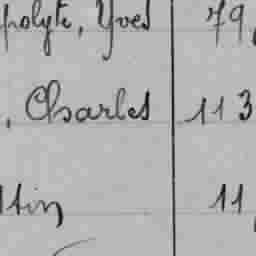 polyte, Yves 79,
, Charles 113
tin 11,